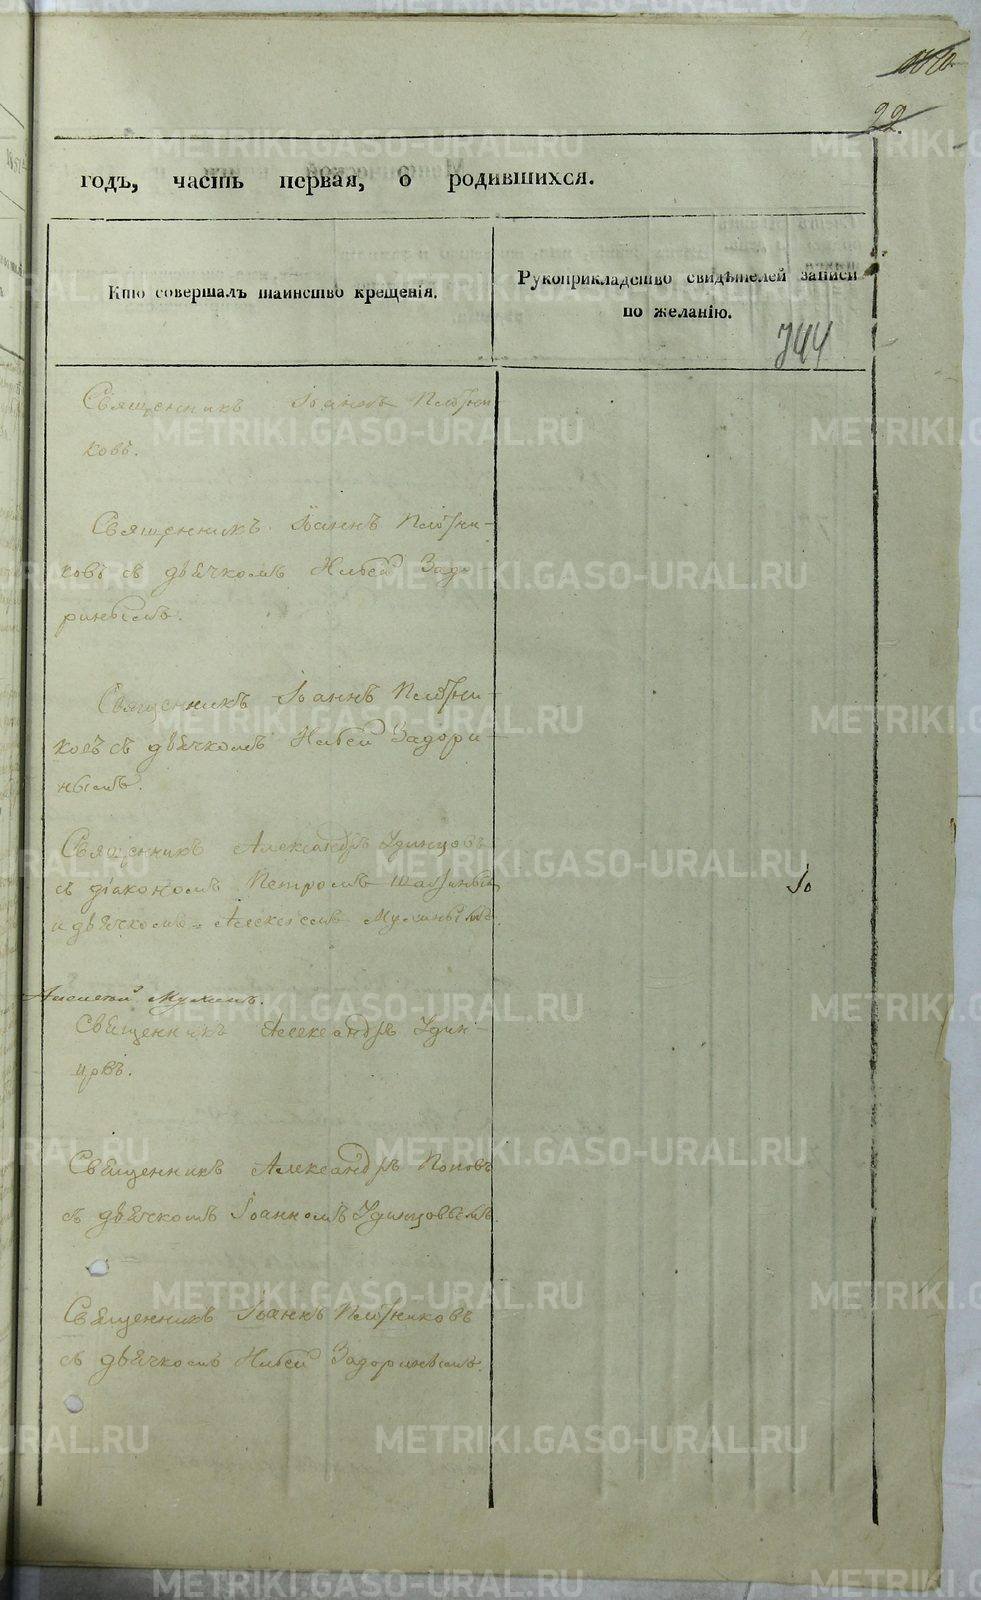 22.
годъ, часть первая, о родившихся.
Кто совершалъ таинство крещенія.
Рукоприкладство свидѣтелей записи
по желанію.
744
Священникъ Іоаннъ Плотни
ковъ.
Священникъ Іоаннъ Плотни-
ковъ съ дьячкомъ Задо
ринымъ.
Священникъ Іоаннъ Плотни-
ковъ съ дьячкомъ Задори-
нымъ.
Священникъ Александръ Удинцовъ
съ діакономъ Петромъ
и дьячкомъ Алексѣемъ
Священникъ Александръ Удин-
цовъ.
Священникъ Александръ Поповъ
съ дьячкомъ Іоанномъ Удинцовымъ.
Священникъ Іоаннъ Плотниковъ
съ дьячкомъ Задоринымъ.
METRIKI.GASO-URAL.RU